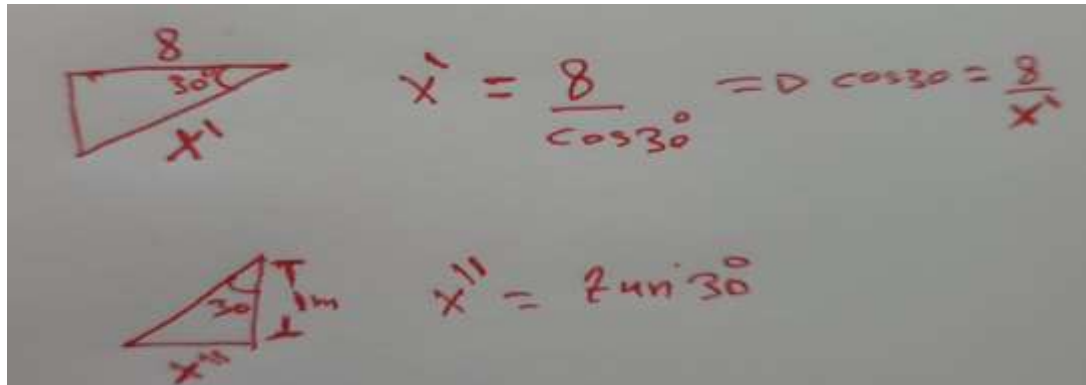 8
30°
x'
x' = 8 / cos30° => cos30 = 8 / x'
30
1m
x"
x" = tan 30°